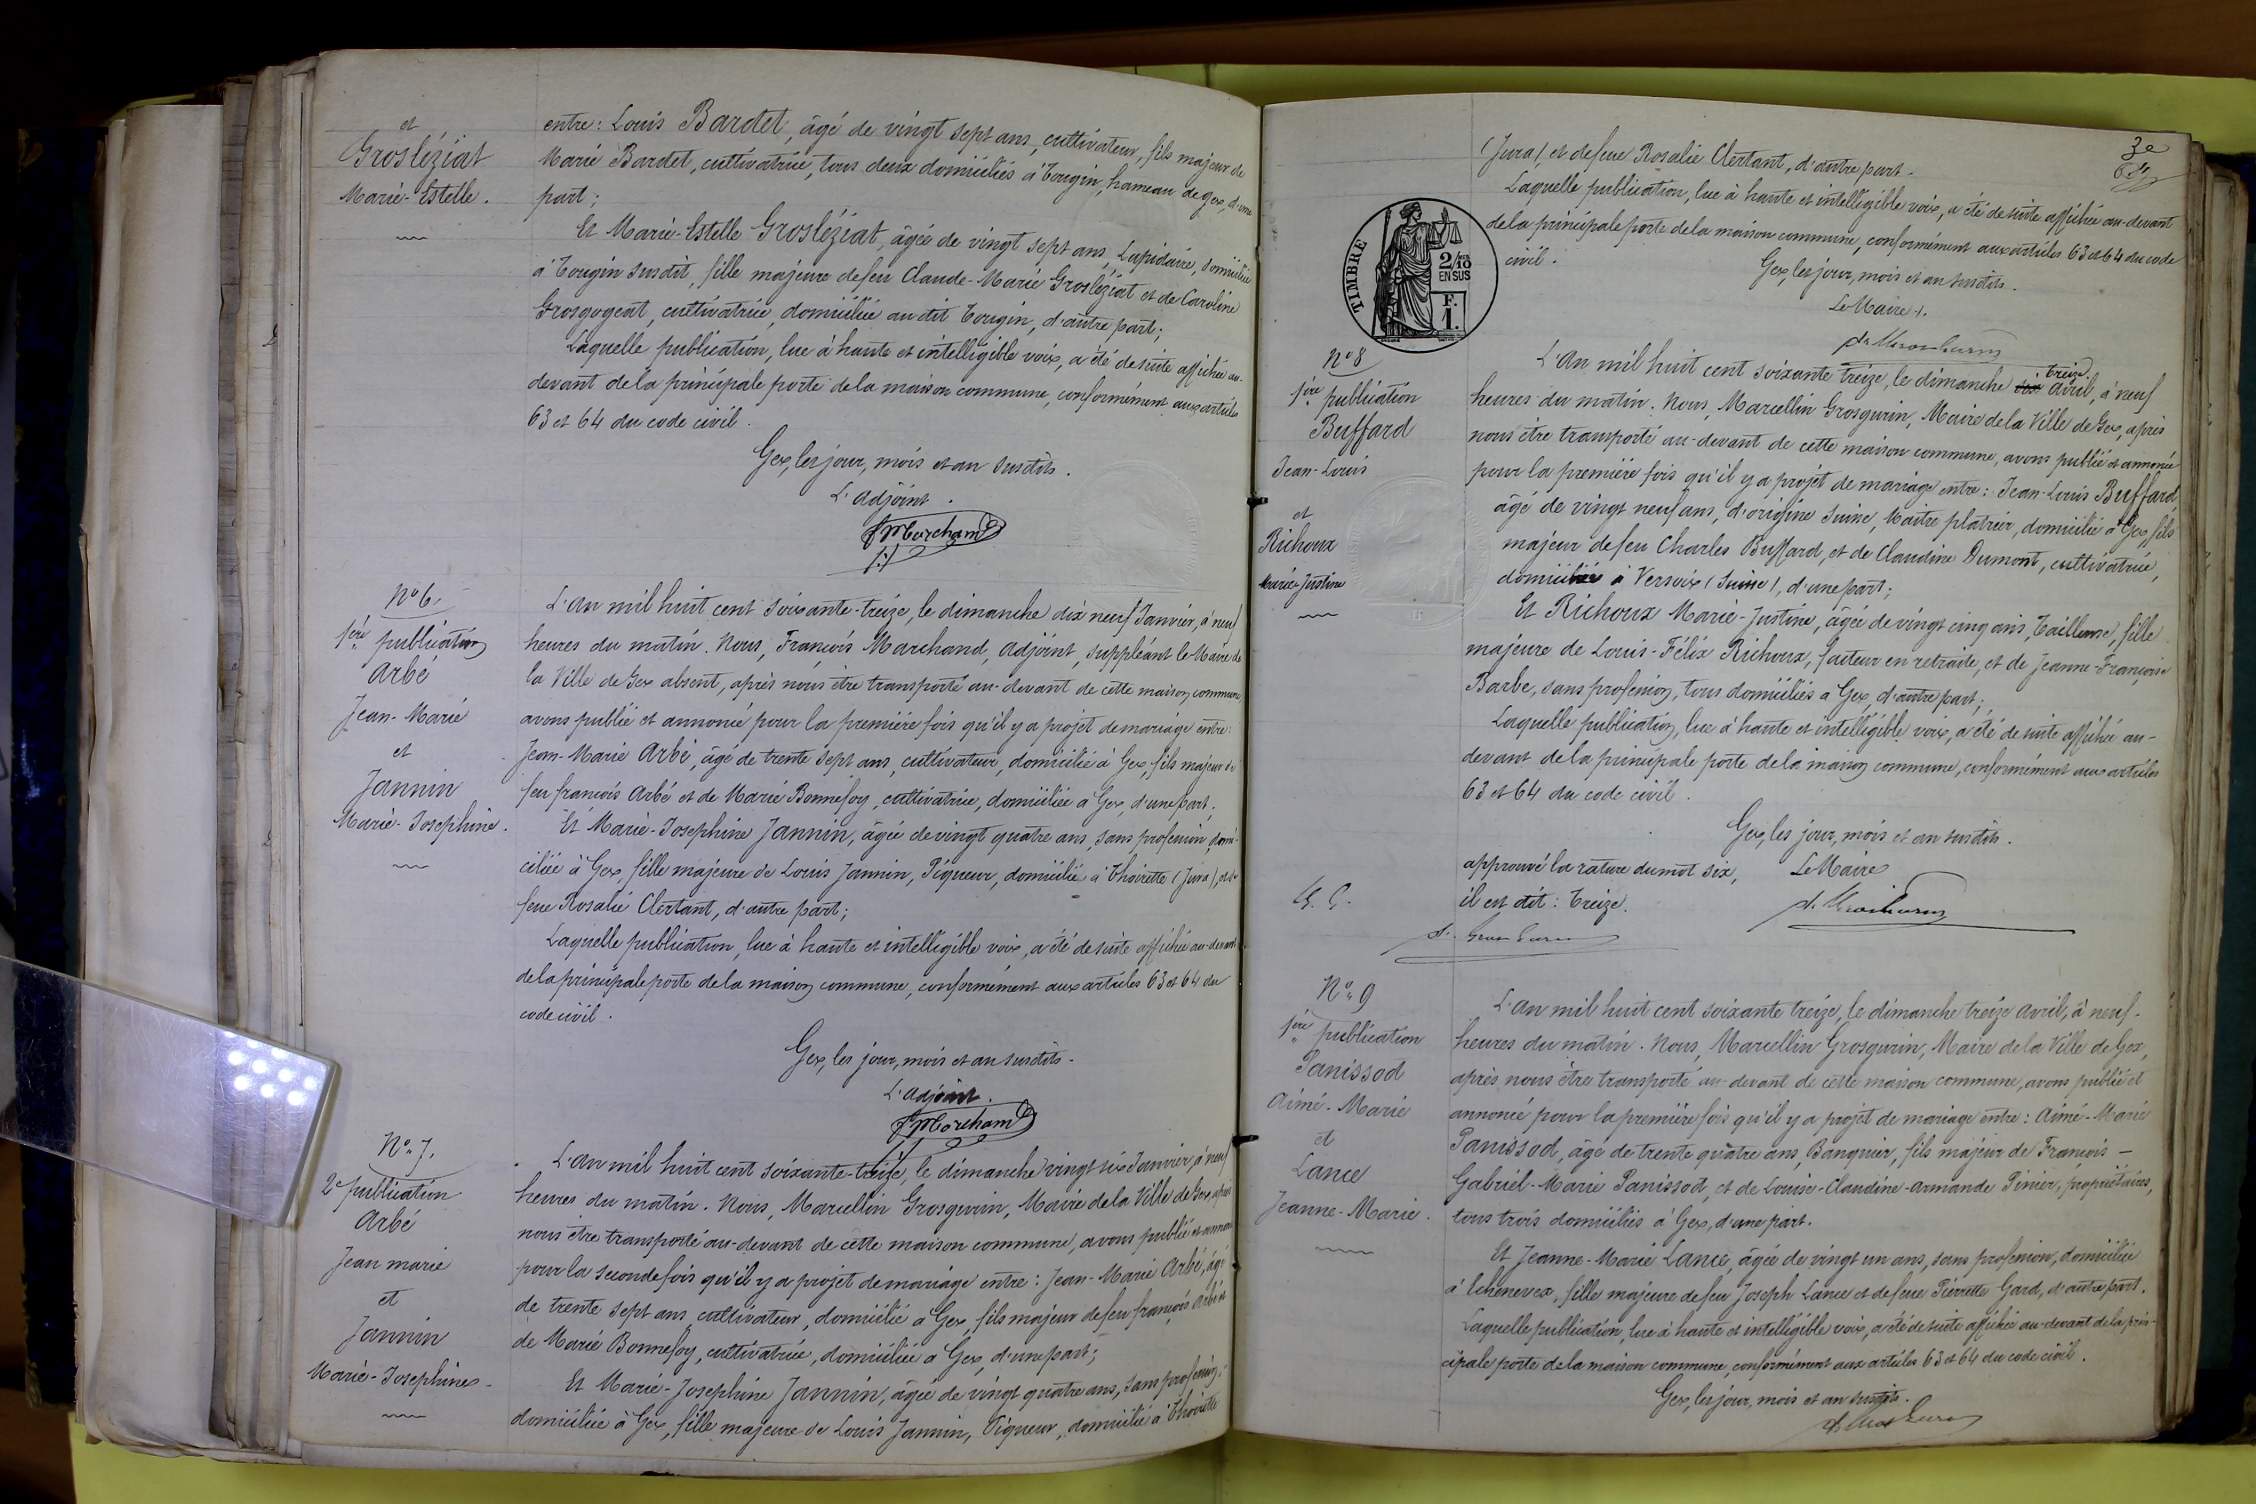 et
Grosléziat
Marie-Estelle.
entre: Louis Bardet, âgé de vingt sept ans, cultivateur, fils majeur de
Marie Bardet, cultivatrice, tous deux domiciliés à Tougin, hameau de Gex, d'une
part;
Et Marie-Estelle Grosléziat, âgée de vingt sept ans, Lapidaire, domiciliée
à Tougin susdit, fille majeure de feu Claude-Marie Grosléziat et de Caroline
Grosgogeat, cultivatrice, domiciliée au dit Tougin, d'autre part;
Laquelle publication, lue à haute et intelligible voix, a été de suite affichée au-
devant de la principale porte de la maison commune, conformément aux articles
63 et 64 du code civil.
Gex, les jour, mois et an susdits.
L'adjoint.
f Marchand
N° 6.
1ère publication
Arbé
Jean-Marie
et
Jannin
Marie-Josephine.
L'An mil huit cent soixante-treize, le dimanche dix neuf Janvier, à neuf
heures du matin. Nous, François Marchand, adjoint, suppléant le Maire de
la Ville de Gex absent, après nous être transporté au-devant de cette maison commune,
avons publié et annoncé pour la première fois qu'il y a projet de mariage entre:
Jean-Marie Arbé, âgé de trente sept ans, cultivateur, domicilié à Gex, fils majeur de
feu françois Arbé et de Marie Bonnefoy, cultivatrice, domiciliée à Gex, d'une part;
Et Marie-Josephine Jannin, âgée de vingt quatre ans, sans profession, domi-
ciliée à Gex, fille majeure de Louis Jannin, Piqueur, domicilié à Thoirette (Jura), et de
feue Rosalie Clertant, d'autre part;
Laquelle publication, lue à haute et intelligible voix, a été de suite affichée au-devant
de la principale porte de la maison commune, conformément aux articles 63 et 64 du
code civil.
Gex, les jour, mois et an susdits.
L'adjoint.
f Marchand
N° 7.
2e publication
Arbé
Jean marie
et
Jannin
Marie-Josephine
L'An mil huit cent soixante-treize, le dimanche vingt six Janvier, à neuf
heures du matin. Nous, Marcellin Grosgurin, Maire de la Ville de Gex, après
nous être transporté au-devant de cette maison commune, avons publié et annoncé
pour la seconde fois qu'il y a projet de mariage entre: Jean-Marie Arbé, âgé
de trente sept ans, cultivateur, domicilié à Gex, fils majeur de feu françois Arbé et
de Marie Bonnefoy, cultivatrice, domiciliée à Gex, d'une part;
Et Marie-Josephine Jannin, âgée de vingt quatre ans, sans profession,
domiciliée à Gex, fille majeure de Louis Jannin, Piqueur, domicilié à Thoirette
3e
(Jura), et de feue Rosalie Clertant, d'autre part.
Laquelle publication, lue à haute et intelligible voix, a été de suite affichée au-devant
de la principale porte de la maison commune, conformément aux articles 63 et 64 du code
civil.
Gex, les jour, mois et an susdits.
Le Maire.
TIMBRE
2/10 EN SUS
F.
1.
N° 8
1ère publication
Buffard
Jean-Louis
et
Richoux
Marie-Justine
L'An mil huit cent soixante treize, le dimanche six treize avril, à neuf
heures du matin. Nous, Marcellin Grosgurin, Maire de la Ville de Gex, après
nous être transporté au-devant de cette maison commune, avons publié et annoncé
pour la première fois qu'il y a projet de mariage entre: Jean-Louis Buffard,
âgé de vingt neuf ans, d'origine suisse, Maître platrier, domicilié à Gex, fils
majeur de feu Charles Buffard, et de Claudine Dumont, cultivatrice,
domiciliée à Versoix (Suisse), d'une part;
Et Richoux Marie-Justine, âgée de vingt cinq ans, Tailleuse, fille
majeure de Louis-Félix Richoux, facteur en retraite, et de Jeanne-Françoise
Barbe, sans profession, tous domiciliés à Gex, d'autre part;
Laquelle publication, lue à haute et intelligible voix, a été de suite affichée au-
devant de la principale porte de la maison commune, conformément aux articles
63 et 64 du code civil.
Gex, les jour, mois et an susdits.
approuvé la rature du mot six,
il est dit: Treize.
Le Maire
N° 9
1ère publication
Panissod
Aimé-Marie
et
Lance
Jeanne-Marie.
L'An mil huit cent soixante treize, le dimanche treize avril, à neuf
heures du matin. Nous, Marcellin Grosgurin, Maire de la Ville de Gex,
après nous être transporté au-devant de cette maison commune, avons publié et
annoncé pour la première fois qu'il y a projet de mariage entre: Aimé-Marie
Panissod, âgé de trente quatre ans, Banquier, fils majeur de François-
Gabriel-Marie Panissod, et de Louise-Claudine-Armande Pinier, propriétaires,
tous trois domiciliés à Gex, d'une part.
Et Jeanne-Marie Lance, âgée de vingt un ans, sans profession, domiciliée
à Echenevex, fille majeure de feu Joseph Lance et de feue Pierrette Gard, d'autre part.
Laquelle publication, lue à haute et intelligible voix, a été de suite affichée au-devant de la prin-
cipale porte de la maison commune, conformément aux articles 63 et 64 du code civil.
Gex, les jour, mois et an susdits.